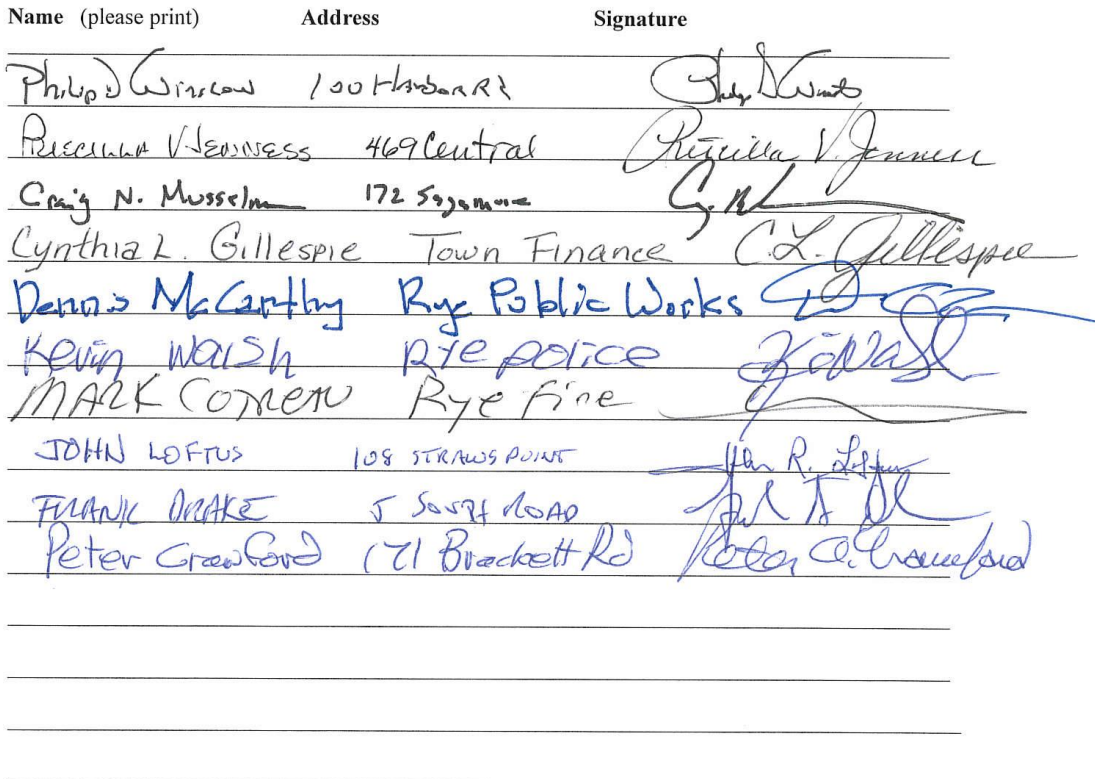 Name (please print) Address Signature
Philip D Winslow 100 Harbor Rd
Priscilla V. Jenness 469 Central Priscilla V. Jenness
Craig N. Musselman 172 Sagamore
Cynthia L. Gillespie Town Finance C.L. Gillespie
Dennis McCarthy Rye Public Works
Kevin Walsh Rye police K Walsh
MARK COTREAU Rye Fire
JOHN LOFTUS 108 STRAWS POINT John R. Loftus
FRANK DRAKE 5 South ROAD
Peter Crawford 171 Brackett Rd Peter A. Crawford